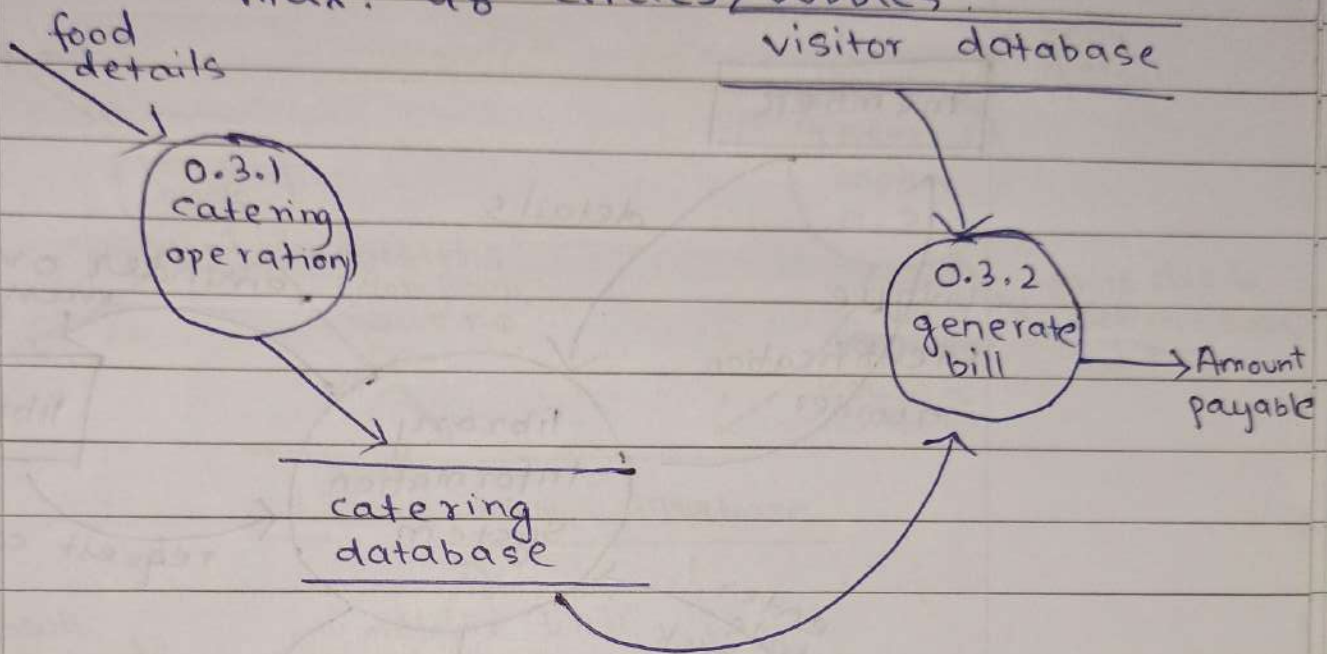 food
details
visitor database
0.3.1
catering
operation
0.3.2
generate
bill
Amount
payable
catering
database